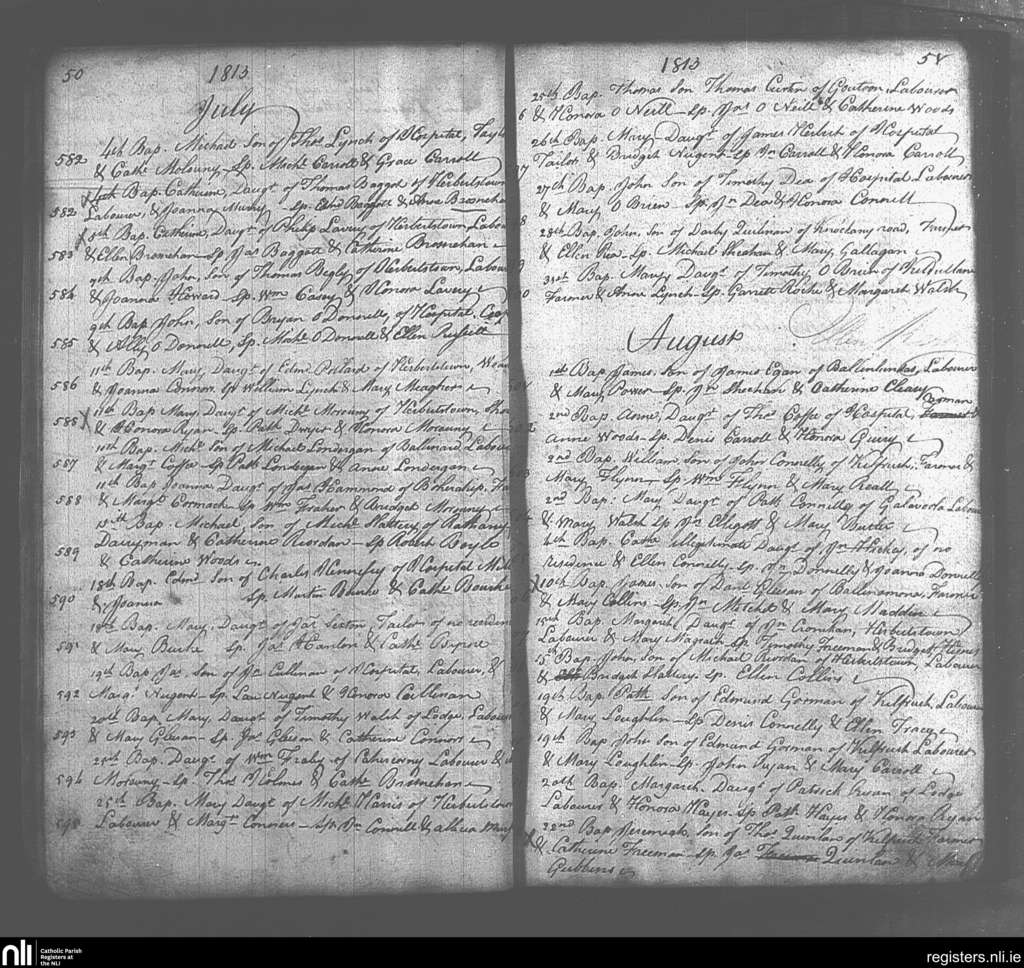 50 1813
July
4th Bap. Michael Son of Thos Lynch of Hospital, Tayl
582 & Cathe Moloney Sp. Michl Carroll & Grace Carroll
4th Bap. Catherine Daugt of Thomas Baggot of Herbertstown
582 Labourer, & Joanna Murry - Sp. Edmd Baggott & Anne Brosnehan
8th Bap. Catherine, Daugt of Philip Lavery of Herbertstown, Labou
583 & Ellen Brosnehan Sp Jas Baggott & Catherine Brosnehan
9th Bap. John, Son of Thomas Begly of Herbertstown, Labour
584 & Joanna Howard Sp. Wm Casey & Honora Lavery
9th Bap John, Son of Bryan O Donnell, of Hospital, Coop
585 & Ally O Donnell, Sp. Michl O Donnell & Ellen Russell
11th Bap. Mary, Daugt of Edmd Pollard of Herbertstown, Weav
586 & Joanna Connors Sp William Lynch & Mary Meagher
11th Bap Mary Daugt of Michl Morouny of Herbertstown, Sho
588 & Honora Ryan Sp. Patk Dwyer & Honora Morouny
10th Bap. Michl Son of Michael Londergan of Ballinard Labour
587 & Margt Coffe Sp Patk Londergan & Anne Londergan
11th Bap Joanna Daugt of Jas Hammond of Boherahip. Fa
588 & Margt Cormack Sp Wm Fraher & Bridget Morouny
15th Bap. Michael, Son of Michl Hattery of Rathany
Dairyman & Catherine Riordan - Sp Robert Boyle
589 & Catherine Woods
18th Bap. Edmd Son of Charles Hennessy of Hospital
590 & Joanna Sp. Martin Burke & Cathe Bourke
18th Bap. Mary, Daugt of Jas Sexton, Tailor of no residen
591 & Mary Burke Sp. Jas Hanlon & Cathe Byrne
19th Bap Jas. Son of Jn Cullinan of Hospital, Labourer, &
592 Margt Nugent - Sp Lau Nugent & Honora Cullinan
20th Bap, Mary, Daugt of Timothy Walsh of Lodge, Labour
593 & Mary Gleeson - Sp Jas Gleeson & Catherine Connor
25th Bap. Daugt of Wm Frahy of Cahercorny Labourer &
594 Morouny - Sp. Thos Holmes & Cathe Brosnehan
25th Bap. Mary Daugt of Michl Harris of Herbertstown
595 Labourer & Margt Connors - Sp. Connell & Mary
1813 51
25th Bap. Thomas Son Thomas Curten of Goutoon, Labourer
& Honora O Neill - Sp. Jas O Neill & Catherine Woods
26th Bap. Mary Daugt of James Herbert of Hospital
Tailor & Bridget Nugent Sp Jn Carroll & Honora Carroll
27th Bap. John Son of Timothy Dea of Hospital Labourer
& Mary O Brien - Sp. Jn Dea & Honora Connell
28th Bap. John, Son of Darby Quilinan of Knockany road, Farmer
& Ellen Rea - Sp. Michael Sheahan & Mary Gallagan
31st Bap. Mary Daugt of Timothy O Brien of
Farmer & Anne Lynch - Sp. Garrett Roche & Margaret Walsh
August
1st Bap James, Son of James Egan of Ballinlinkas, Labourer
& Mary Power Sp. Jn Sheehan & Catherine Cleary
2nd Bap. Anne, Daugt of Thos Coffe of Hospital,
Anne Woods - Sp. Denis Carroll & Honora Quiry
2nd Bap. William Son of John Connelly of Kilfrush, Farmer &
Mary Flynn - Sp Wm Flynn & Mary Reall
2nd Bap. Mary Daugt of Patt Connelly of Labour
& Mary Walsh Sp Jn Elligott & Mary Burke
4th Bap. Cathe Illegitimate Daugt of, Jn Hickey, of no
residence & Ellen Connelly Sp. Jn Donnelly & Joanna Donnelly
10th Bap. James, Son of Danl Gleeson of Ballinamona, Farmer
& Mary Collins - Sp. Jn Mitchel & Mary Madden
15th Bap. Margaret, Daugt of Jn Cronehan, Herbertstown
Labourer & Mary Magrath Sp Timothy Freeman & Bridget
15th Bap. John, Son of Michael Riordan of Herbertstown, Labourer
& Bridget Hattery. Sp. Ellen Collins
19th Bap. Patk Son of Edmund Gorman of Kilfrush, Labour
& Mary Loughlin - Sp Denis Connelly & Ellen Tracy
19th Bap John Son of Edmund Gorman of Kilfrush Labourer
& Mary Loughlin Sp. John Ryan & Mary Carroll
20th Bap. Margaret, Daugt of Patrick Ryan of Lodge
Labourer & Honora Hayes Sp Patk Hayes & Honora Ryan
22nd Bap Jeremiah, Son of Thos Quinlan of Kilfrush Farmer
& Catherine Freeman - Sp. Jas Quinlan & Mary
Gubbins
nli Catholic Parish
Registers at
the NLI
registers.nli.ie